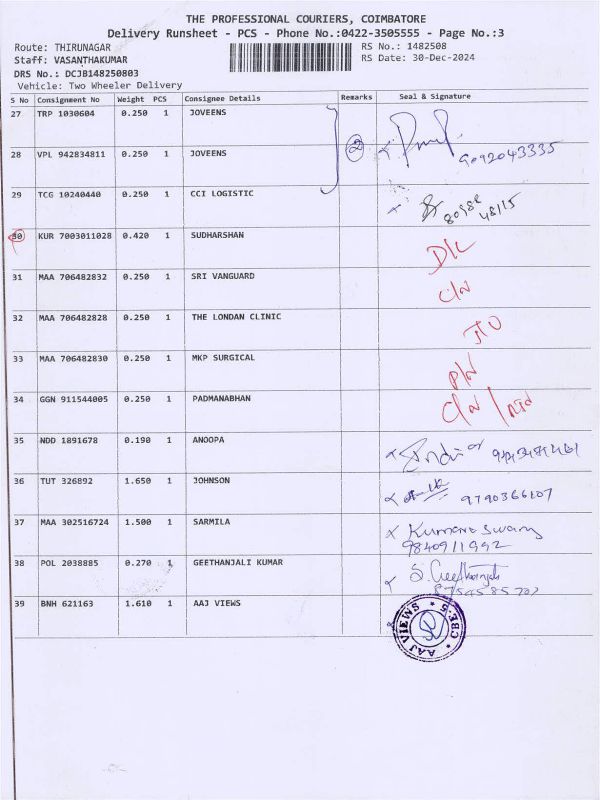 THE PROFESSIONAL COURIERS, COIMBATORE
Delivery Runsheet - PCS - Phone No.:0422-3505555 - Page No.:3
Route: THIRUNAGAR RS No.: 1482508
Staff: VASANTHAKUMAR RS Date: 30-Dec-2024
DRS No.: DCJB148250803
Vehicle: Two Wheeler Delivery
S No Consignment No Weight PCS Consignee Details Remarks Seal & Signature
27 TRP 1030604 0.250 1 JOVEENS
28 VPL 942834811 0.250 1 JOVEENS 2 9092043335
29 TCG 10240440 0.250 1 CCI LOGISTIC
30 KUR 7003011028 0.420 1 SUDHARSHAN D/L
31 MAA 706482832 0.250 1 SRI VANGUARD C/N
32 MAA 706482828 0.250 1 THE LONDAN CLINIC
33 MAA 706482830 0.250 1 MKP SURGICAL P/N
34 GGN 911544005 0.250 1 PADMANABHAN C/N
35 NDD 1891678 0.190 1 ANOOPA
36 TUT 326892 1.650 1 JOHNSON 9790366107
37 MAA 302516724 1.500 1 SARMILA Kumaraswamy
9840911992
38 POL 2038885 0.270 1 GEETHANJALI KUMAR S. Geethanjali
8754585707
39 BNH 621163 1.610 1 AAJ VIEWS
AAJ VIEWS * CBE-5 *